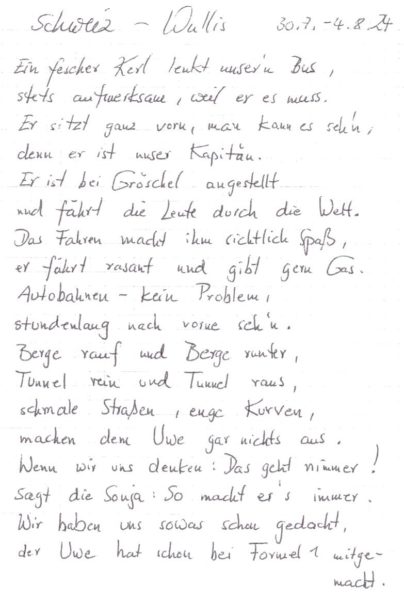 Schweiz - Wallis 30.7.-4.8.24
Ein fescher Kerl lenkt unser'n Bus,
stets aufmerksam, weil er es muss.
Er sitzt ganz vorn, man kann es seh'n,
denn er ist unser Kapitän.
Er ist bei Gröschel angestellt
und fährt die Leute durch die Welt.
Das Fahren macht ihm sichtlich Spaß,
er fährt rasant und gibt gern Gas.
Autobahnen - kein Problem,
stundenlang nach vorne seh'n.
Berge rauf und Berge runter,
Tunnel rein und Tunnel raus,
schmale Straßen, enge Kurven,
machen dem Uwe gar nichts aus.
Wenn wir uns denken: Das geht nimmer!
sagt die Sonja: So macht er's immer.
Wir haben uns sowas schon gedacht,
der Uwe hat schon bei Formel 1 mitge-
macht.